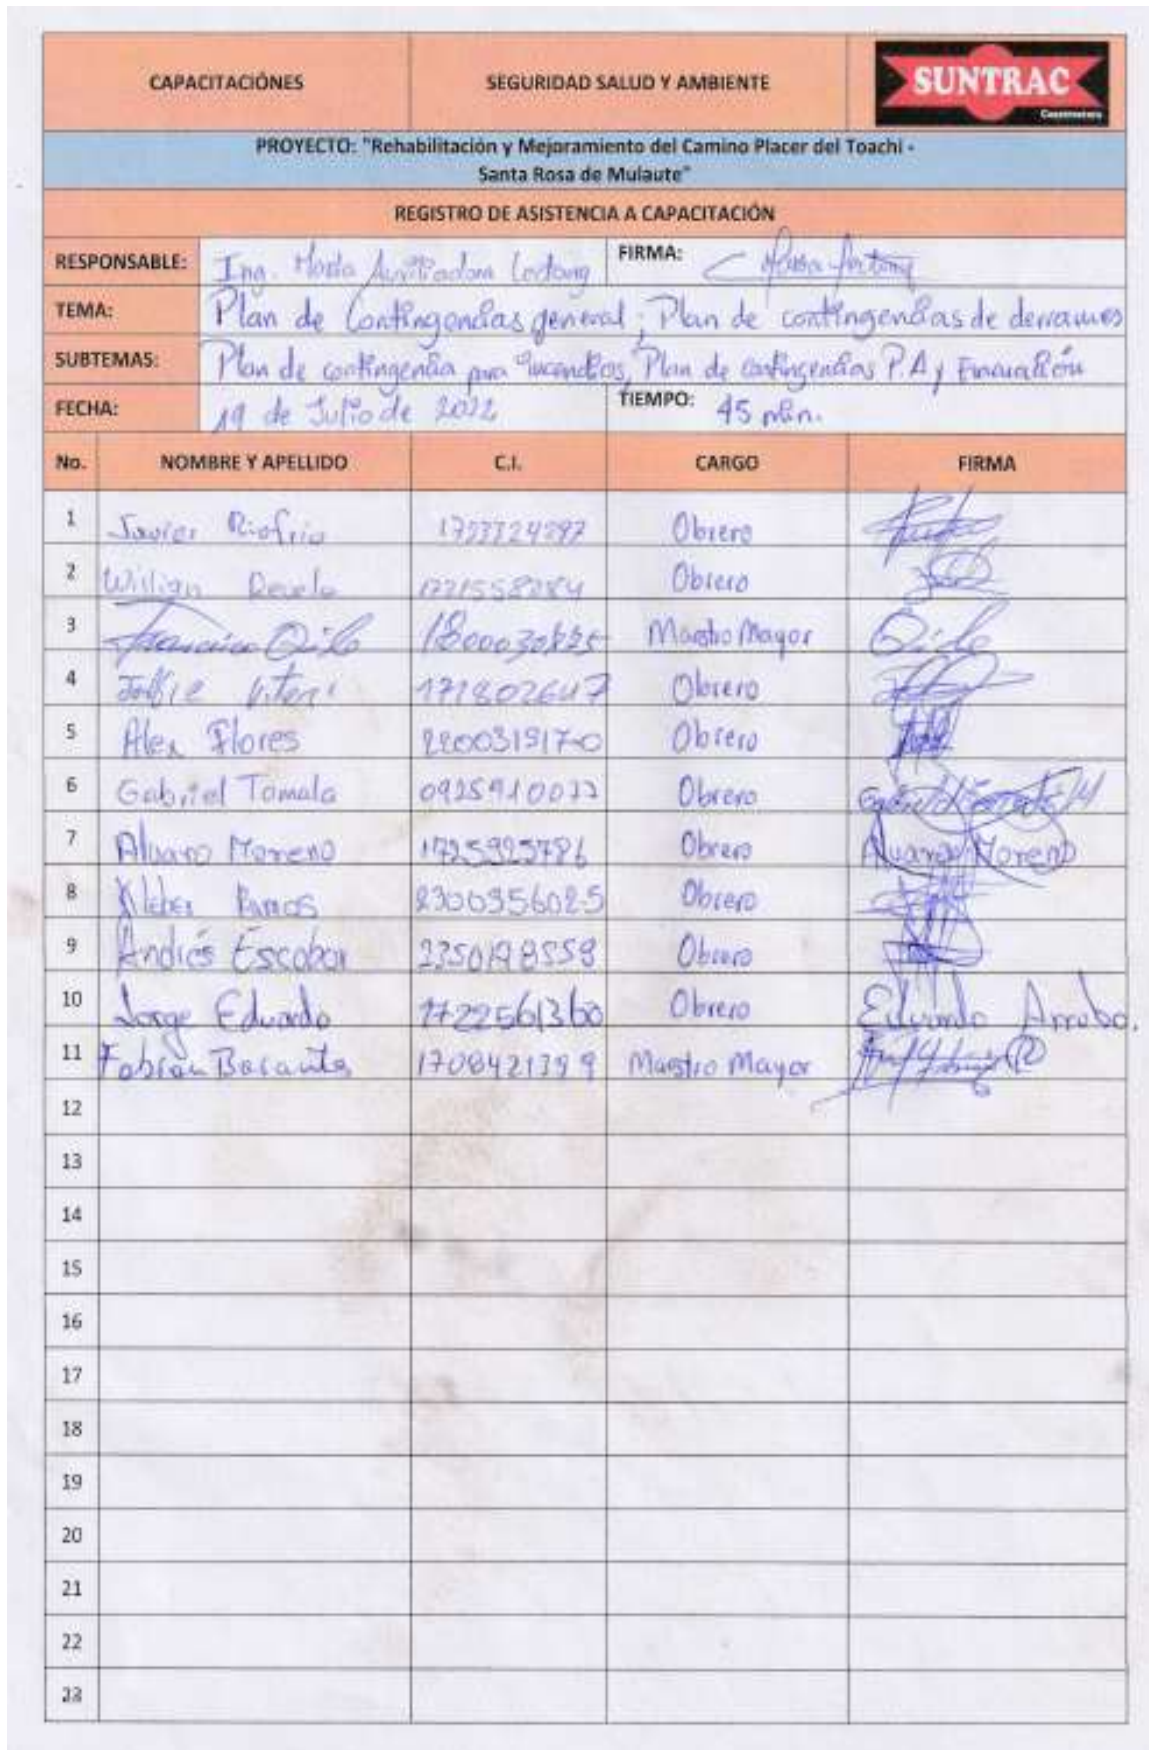 CAPACITACIÓNES
SEGURIDAD SALUD Y AMBIENTE
SUNTRAC
PROYECTO: "Rehabilitación y Mejoramiento del Camino Placer del Toachi -
Santa Rosa de Mulaute"
REGISTRO DE ASISTENCIA A CAPACITACIÓN
RESPONSABLE: Ing. María Auxiliadora FIRMA:
TEMA: Plan de Contingencias general; Plan de contingencias de derrames
SUBTEMAS: Plan de contingencia para incendios, Plan de contingencias P.A y Evacuación
FECHA: 19 de Julio de 2022 TIEMPO: 45 min.
No. NOMBRE Y APELLIDO C.I. CARGO FIRMA
1 Javier Riofrio Obrero
2 Obrero
3 Francisco Maestro Mayor
4 1718026417 Obrero
5 Alex Flores 220031917-0 Obrero
6 Gabriel Tomala Obrero
7 Alvaro Moreno 1725925786 Obrero Alvaro Moreno
8 Kleber Ramos 230035602-5 Obrero
9 Andrés Escobar 2350198559 Obrero
10 Jorge Eduardo 1722561360 Obrero Eduardo Arrobo.
11 Fabián 1708421399 Maestro Mayor
12
13
14
15
16
17
18
19
20
21
22
23